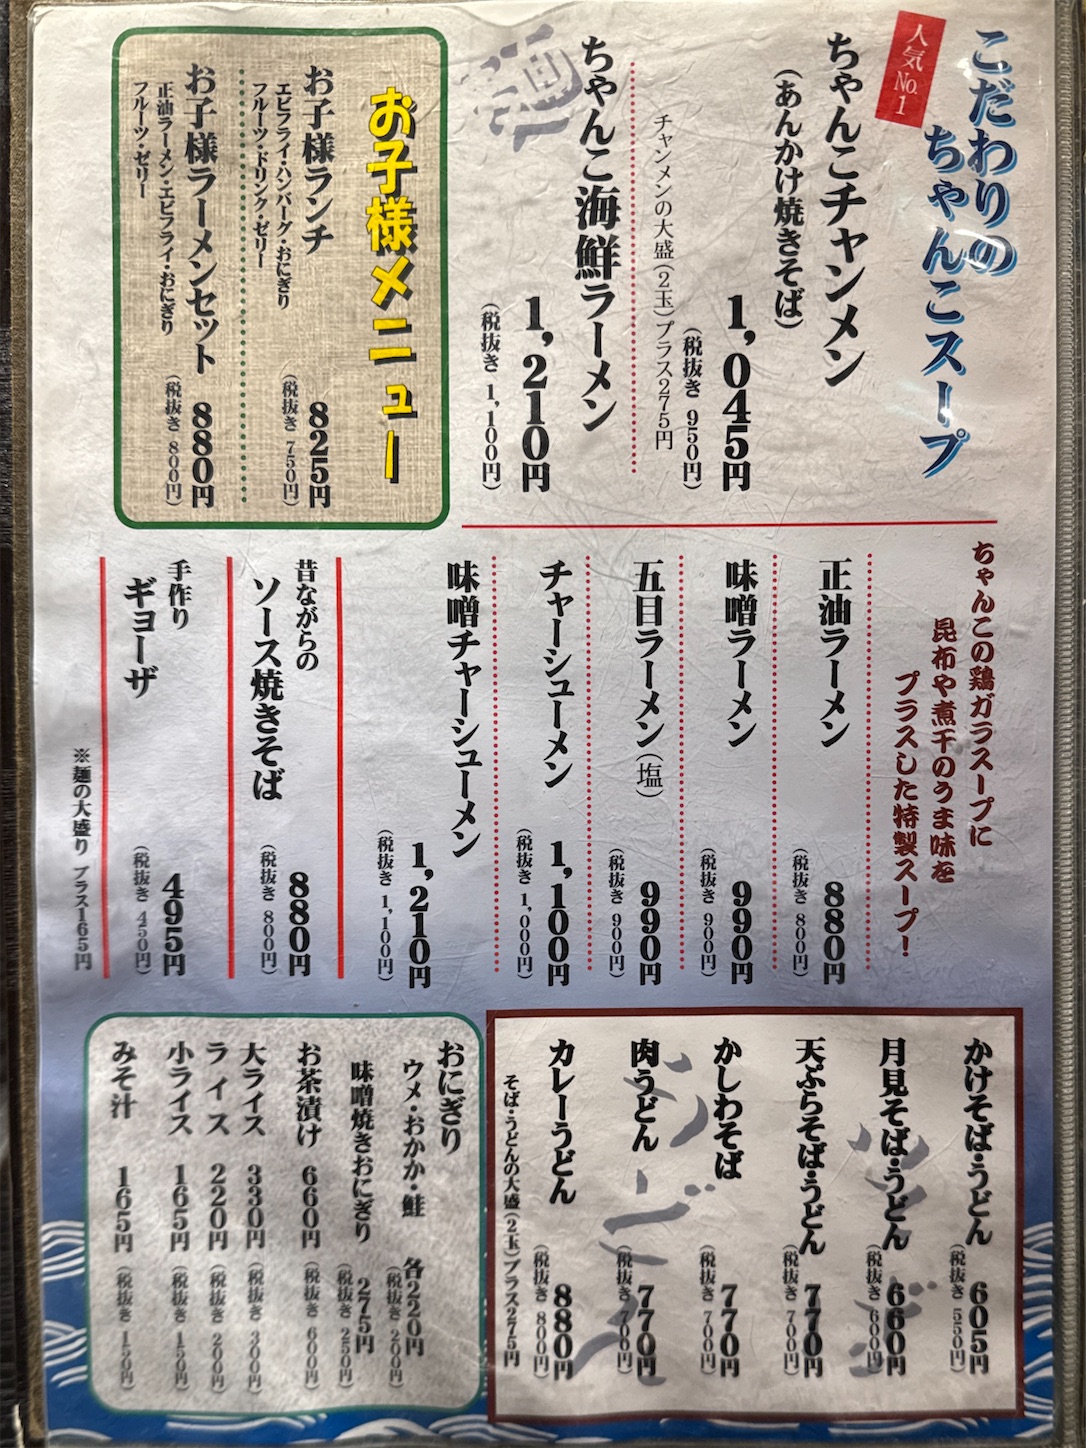 こだわりの
ちゃんこスープ
人気No.1
ちゃんこチャンメン
(あんかけ焼きそば)
1,045円
(税抜き 950円)
チャンメンの大盛(2玉)プラス275円
ちゃんこ海鮮ラーメン
1,210円
(税抜き 1,100円)
お子様メニュー
お子様ランチ
エビフライ・ハンバーグ・おにぎり
フルーツ・ドリンク・ゼリー
825円
(税抜き 750円)
お子様ラーメンセット
正油ラーメン・エビフライ・おにぎり
フルーツ・ゼリー
880円
(税抜き 800円)
ちゃんこの鶏ガラスープに
昆布や煮干のうま味を
プラスした特製スープ!
正油ラーメン
880円
(税抜き 800円)
味噌ラーメン
990円
(税抜き 900円)
五目ラーメン(塩)
990円
(税抜き 900円)
チャーシューメン
1,100円
(税抜き 1,000円)
味噌チャーシューメン
1,210円
(税抜き 1,100円)
昔ながらの
ソース焼きそば
880円
(税抜き 800円)
手作り
ギョーザ
495円
(税抜き 450円)
※麺の大盛り プラス165円
かけそば・うどん
605円
(税抜き 550円)
月見そば・うどん
660円
(税抜き 600円)
天ぷらそば・うどん
770円
(税抜き 700円)
かしわそば
770円
(税抜き 700円)
肉うどん
770円
(税抜き 700円)
カレーうどん
880円
(税抜き 800円)
そば・うどんの大盛(2玉)プラス275円
おにぎり
ウメ・おかか・鮭
各220円
(税抜き 200円)
味噌焼きおにぎり
275円
(税抜き 250円)
お茶漬け 660円
(税抜き 600円)
大ライス 330円
(税抜き 300円)
ライス 220円
(税抜き 200円)
小ライス 165円
(税抜き 150円)
みそ汁 165円
(税抜き 150円)